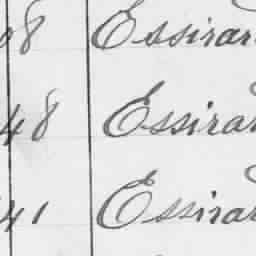 08 Essirar
48 Essirar
41 Essirar